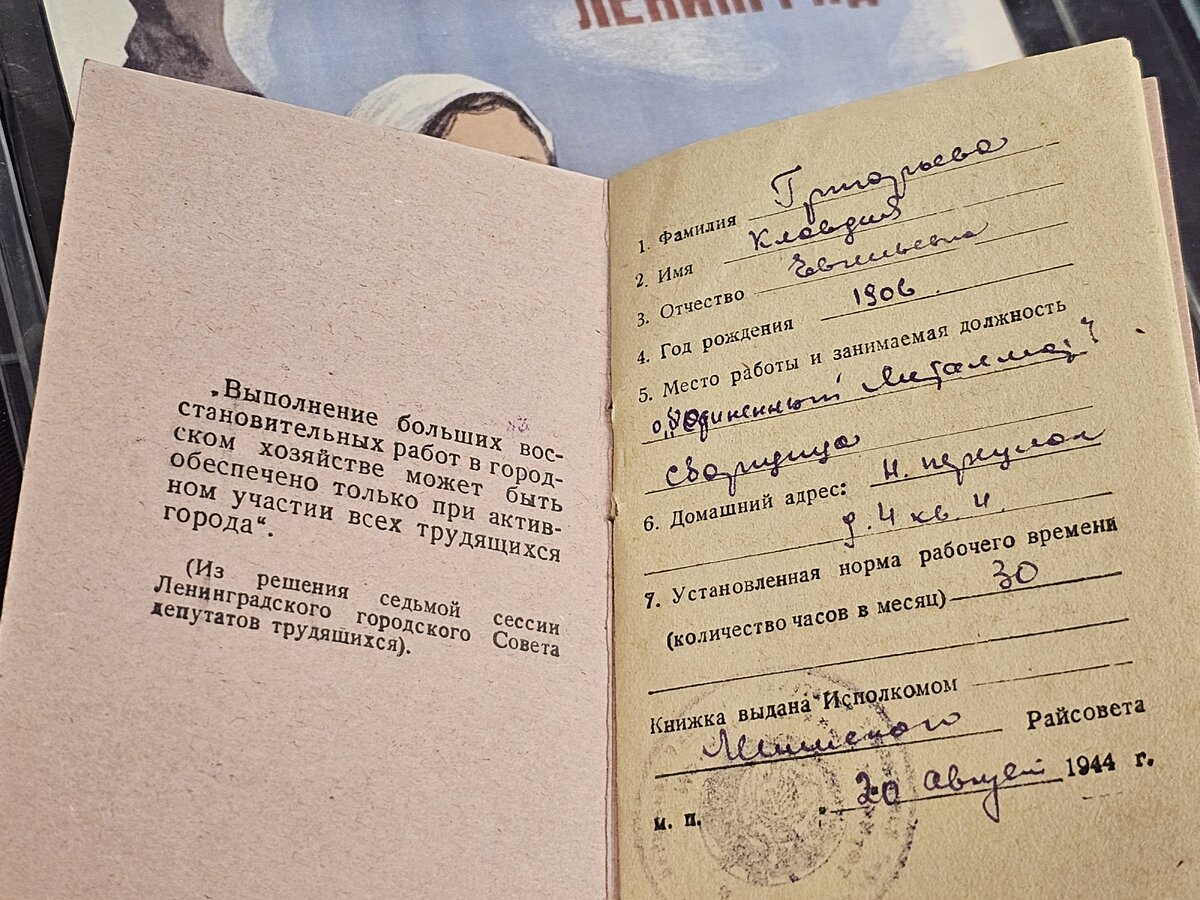 ЛЕНИНГРАД
„Выполнение больших вос-
становительных работ в город-
ском хозяйстве может быть
обеспечено только при актив-
ном участии всех трудящихся
города“.
(Из решения седьмой сессии
Ленинградского городского Совета
депутатов трудящихся).
1. Фамилия Григорьева
2. Имя Клавдия
3. Отчество Евгеньевна
4. Год рождения 1906
5. Место работы и занимаемая должность
сварщица
6. Домашний адрес: Н. переулок
д. 4 кв. 4.
7. Установленная норма рабочего времени
(количество часов в месяц) 30
Книжка выдана Исполкомом
Райсовета
м. п. 20 август 1944 г.